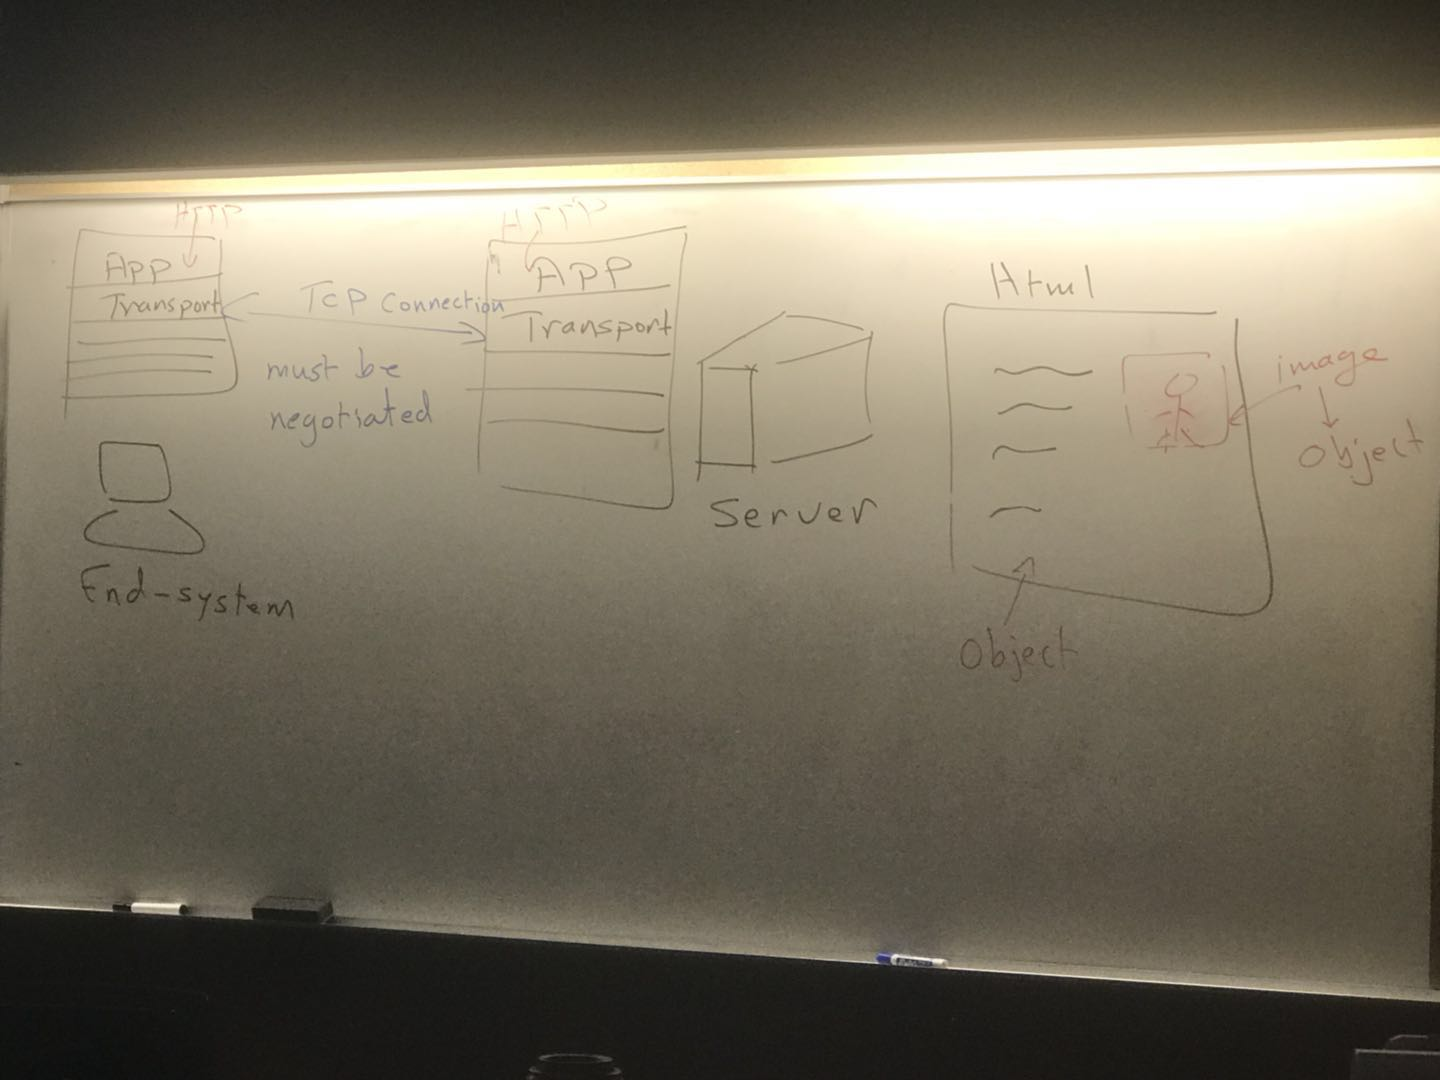 HTTP
App
Transport
TCP connection
must be
negotiated
End-system
HTTP
APP
Transport
Server
Html
image
Object
Object